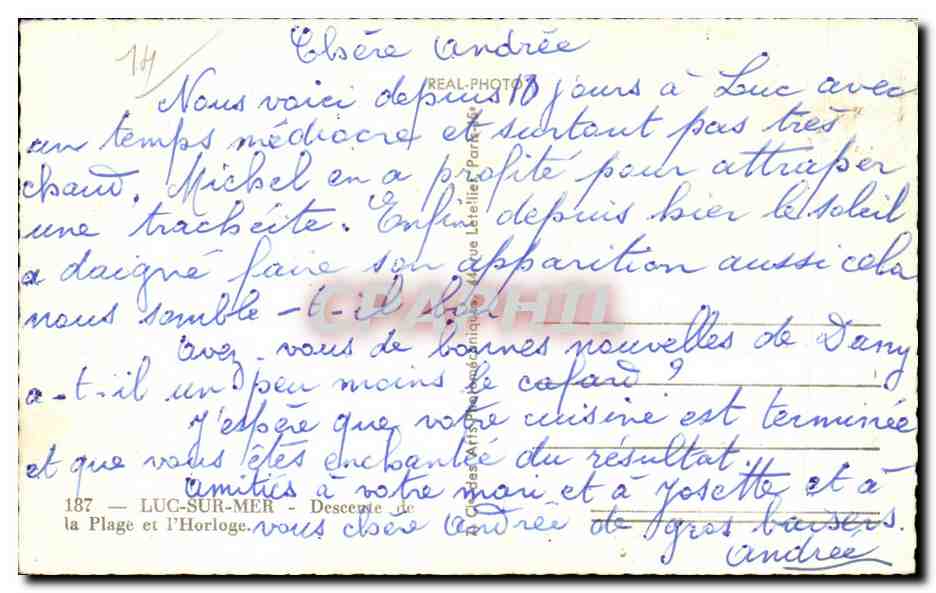 14
Chère Andrée
REAL-PHOTO
Nous voici depuis 10 jours à Luc avec
un temps médiocre et surtout pas très
chaud. Michel en a profité pour attraper
une trachéite. Enfin depuis hier le soleil
a daigné faire son apparition aussi cela
nous semble-t-il bon
CPAPHIL
avez-vous de bonnes nouvelles de Dany
a-t-il un peu moins le cafard?
J'espère que votre cuisine est terminée
et que vous êtes enchantée du résultat.
amitiés à votre mari et à Josette et à
vous chère Andrée de gros baisers.
Andrée
187 — LUC-SUR-MER - Descente de
la Plage et l'Horloge.
Arts Photomécaniques, 44, rue Letellier, Paris-15e